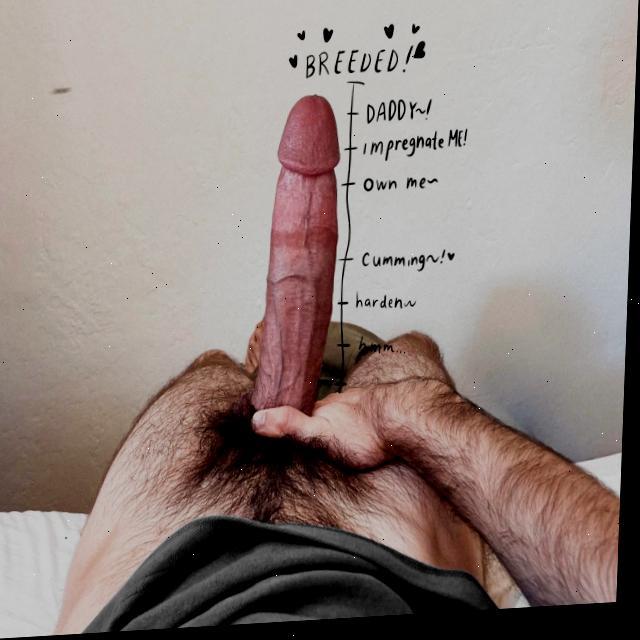 BREEDED!
DADDY~!
impregnate ME!
Own me~
Cumming~!♥
harden~
hmm...